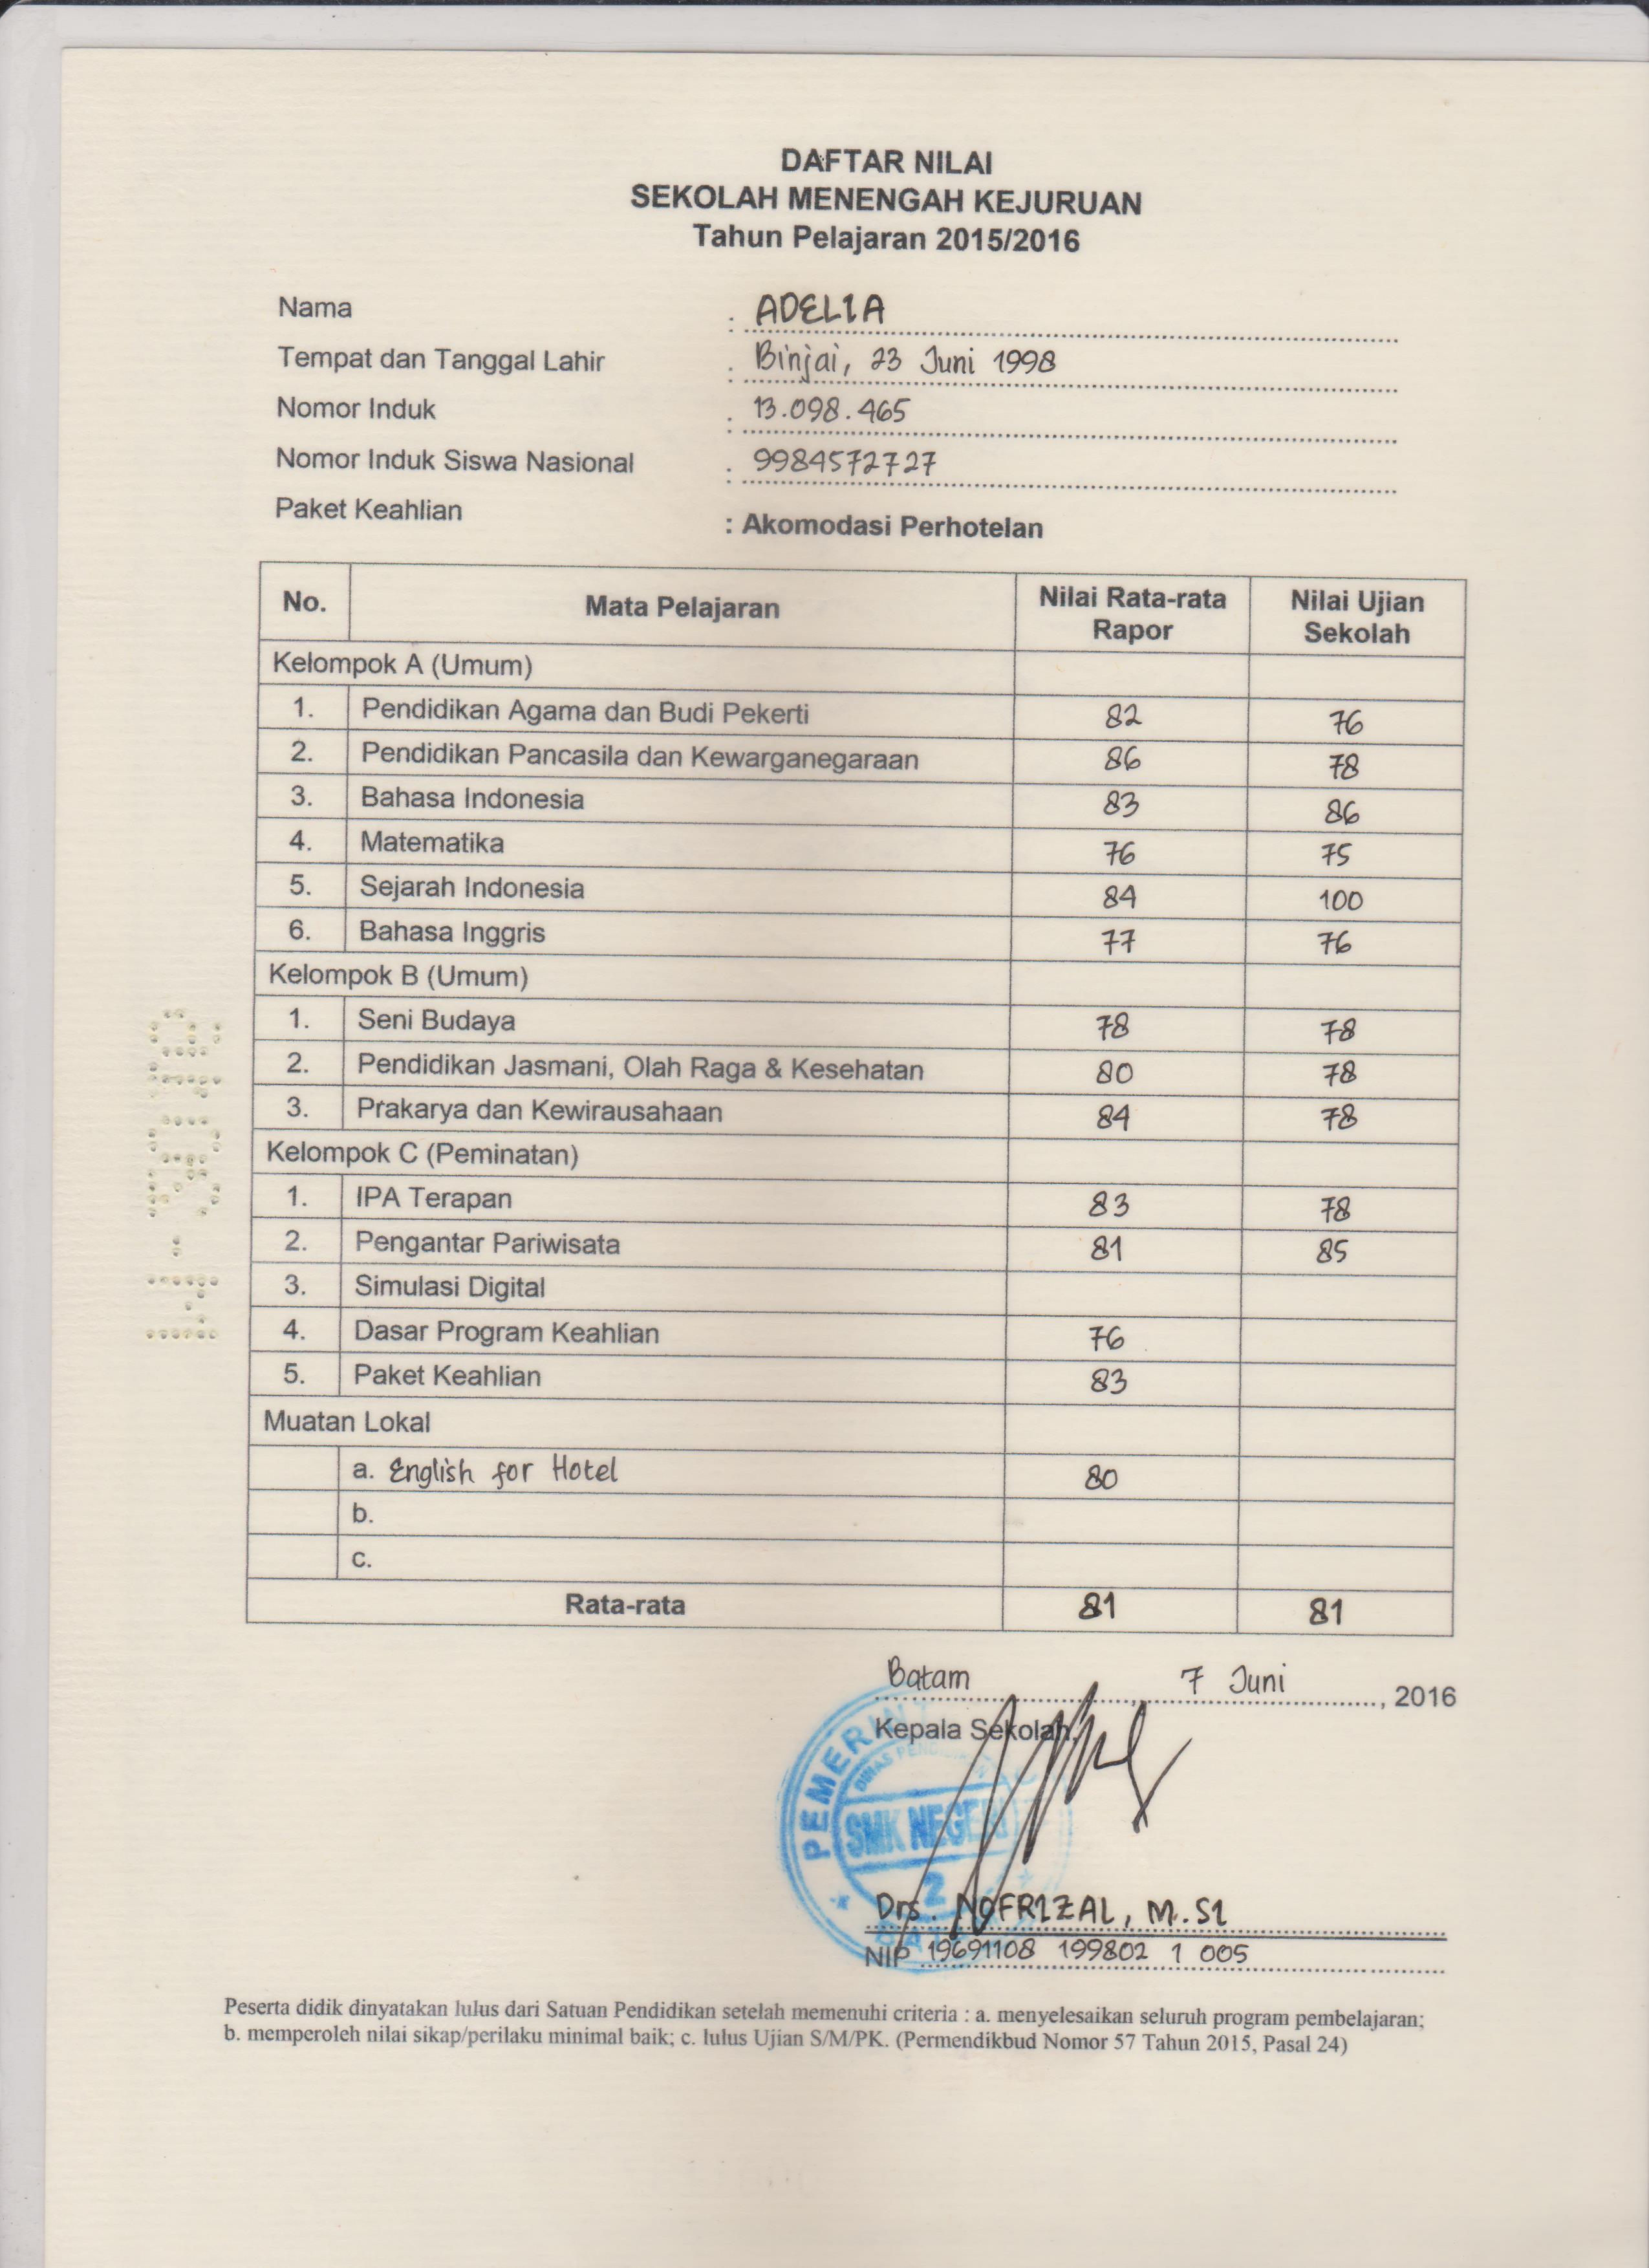 DAFTAR NILAI
SEKOLAH MENENGAH KEJURUAN
Tahun Pelajaran 2015/2016
Nama : ADELIA
Tempat dan Tanggal Lahir : Binjai, 23 Juni 1998
Nomor Induk : 13.098.465
Nomor Induk Siswa Nasional : 9984572727
Paket Keahlian : Akomodasi Perhotelan
No. Mata Pelajaran Nilai Rata-rata Rapor Nilai Ujian Sekolah
Kelompok A (Umum)
1. Pendidikan Agama dan Budi Pekerti 82 76
2. Pendidikan Pancasila dan Kewarganegaraan 86 78
3. Bahasa Indonesia 83 86
4. Matematika 76 75
5. Sejarah Indonesia 84 100
6. Bahasa Inggris 77 76
Kelompok B (Umum)
1. Seni Budaya 78 78
2. Pendidikan Jasmani, Olah Raga & Kesehatan 80 78
3. Prakarya dan Kewirausahaan 84 78
Kelompok C (Peminatan)
1. IPA Terapan 83 78
2. Pengantar Pariwisata 81 85
3. Simulasi Digital
4. Dasar Program Keahlian 76
5. Paket Keahlian 83
Muatan Lokal
a. English for Hotel 80
b.
c.
Rata-rata 81 81
Batam, 7 Juni, 2016
Kepala Sekolah,
SMK NEGERI
2
Drs. NOFRIZAL, M.SI
NIP 19691108 199802 1 005
Peserta didik dinyatakan lulus dari Satuan Pendidikan setelah memenuhi criteria : a. menyelesaikan seluruh program pembelajaran;
b. memperoleh nilai sikap/perilaku minimal baik; c. lulus Ujian S/M/PK. (Permendikbud Nomor 57 Tahun 2015, Pasal 24)